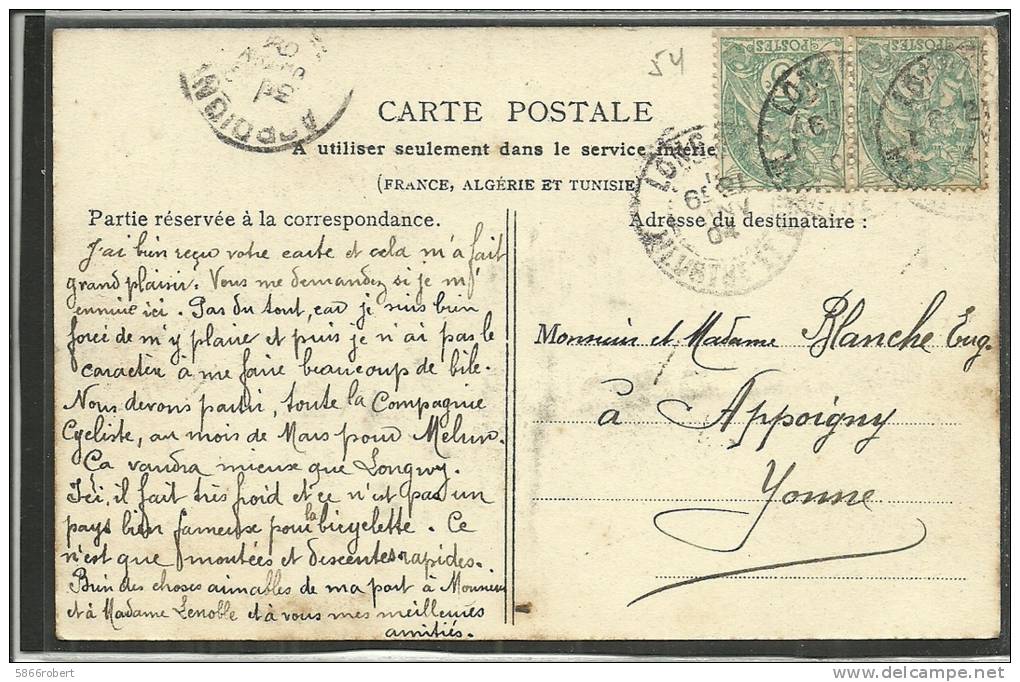 54
POSTES
POSTES
APPOIGNY
CARTE POSTALE
A utiliser seulement dans le service intérie
(FRANCE, ALGÉRIE ET TUNISIE
Partie réservée à la correspondance.
Adresse du destinataire :
J'ai bien reçu votre carte et cela m'a fait
grand plaisir. Vous me demandez si je m'
ennuie ici. Pas du tout, car je suis bien
forcé de m'y plaire et puis je n'ai pas le
caractère à me faire beaucoup de bile.
Nous devons partir, toute la Compagnie
Cycliste, au mois de Mars pour Melun.
Ça vaudra mieux que Longwy.
Ici, il fait très froid et ce n'est pas un
pays bien fameux pour la bicyclette. Ce
n'est que montées et descentes rapides.
Bien des choses aimables de ma part à Monsieur
et à Madame Lenoble et à vous mes meilleures
amitiés.
Monsieur et Madame Blanche Eug.
à Appoigny
Yonne
5866robert
delcampe.net